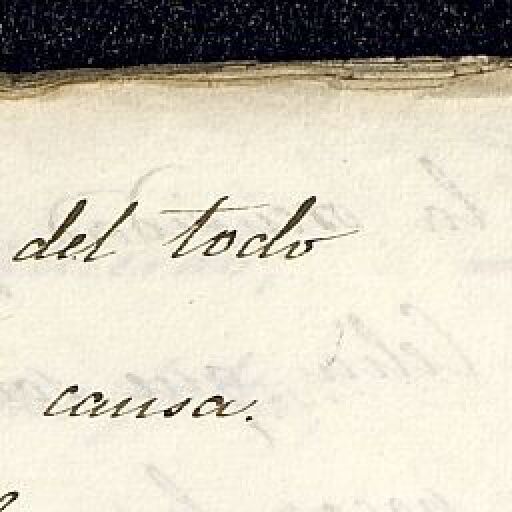 del todo
causa.